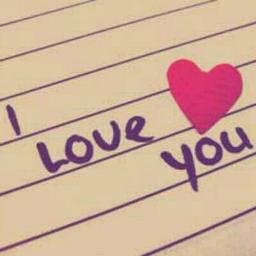 I
LOVE
you